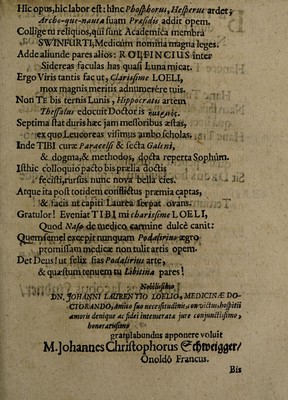 Hic opus, hic labor est: hînc Phosphorus, Hesperus ardet,
Archo-que-nauta suam Præsidis addit opem.
Collige tu reliquos, qui sunt Academica membra
SWINFURTI, Medicûm nomina magna leges.
Adde aliunde pares alios: ROLFINCIUS inter
Sidereas faculas has quasi Luna micat.
Ergo Viris tantis fac ut, Clarissime LOELI,
mox magnis meritis adnumerêre tuis.
Non TE bis ternis Lunis, Hippocratis artem
Thessalus edocuit Doctoris
Septima stat duris hæc jam messoribus æstas,
ex quo Leucoreas visimus ambo scholas.
Inde TIBI curæ Paracelsi & secta Galeni,
& dogma, & methodos, docta reperta Sophûm.
Isthic colloquio pacto bis prælia doctis
fecisti, rursus nunc nova bella cies.
Atque ita post totidem conflictus præmia captas,
& facis ut capiti Laurea serpat ovans.
Gratulor! Eveniat TIBI mi charissime LOELI,
Quod Naso de medico carmine dulcè canit:
Quemsemel excepit nunquam Podalirius ægro
promissam medicæ non tulit artis opem.
Det Deus! ut felix sias Podalirius arte,
& quæstum tenuem tu Libitina pares!
Nobilissimo
DN. JOHANNI LAURENTIO LOELIO, MEDICINÆ DO-
CTORANDO, Amico suo necessitudinis, convictus, hospitii
amoris denique ac fidei intemerata jure conjunctissimo,
honoratissimo
gratulabundus apponere voluit
M. Johannes Christophorus Schweigger/
Onoldô Francus.
Bis